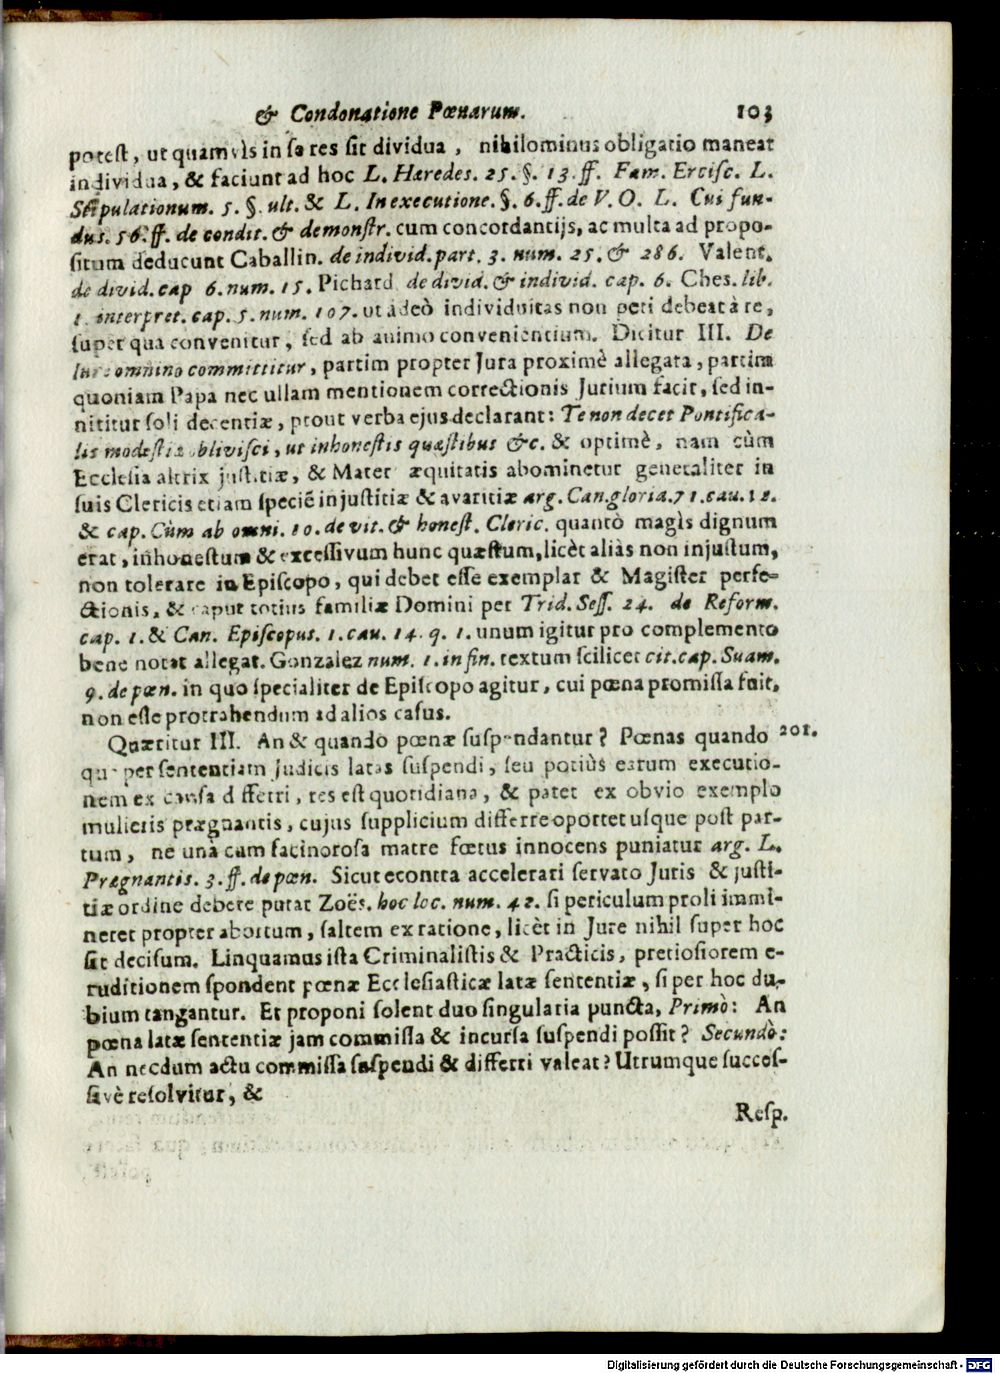 & Condonatione Pœnarum. 103
potest, ut quamvis in se res sit dividua, nihilominus obligatio maneat
individua, & faciunt ad hoc L. Hæredes. 25. §. 13. ff. Fam. Ercisc. L.
Stipulationum. 5. §. ult. & L. In executione. §. 6. ff. de V. O. L. Cui fun-
dus. 56. ff. de condit. & demonstr. cum concordantijs, ac multa ad propo-
situm deducunt Caballin. de individ. part. 3. num. 25. & 286. Valent.
de divid. cap 6. num. 15. Pichard de divid. & individ. cap. 6. Ches. lib.
1. interpret. cap. 5. num. 107. ut adeò individuitas non peti debeat à re,
super qua convenitur, sed ab animo convenientium. Dicitur III. De
Iure omnino committitur, partim propter Jura proximè allegata, partim
quoniam Papa nec ullam mentionem correctionis Jurium facit, sed in-
nititur soli decentiæ, prout verba ejus declarant: Te non decet Pontifica-
lis modestiæ oblivisci, ut inhonestis quæstibus &c. & optimè, nam cùm
Ecclesia altrix justitiæ, & Mater æquitatis abominetur generaliter in
suis Clericis etiam speciē injustitiæ & avaritiæ arg. Can. gloria. 71. cau. 12.
& cap. Cùm ab omni. 10. de vit. & honest. Cleric. quantò magìs dignum
erat, inhonestum & excessivum hunc quæstum, licèt aliàs non injustum,
non tolerare in Episcopo, qui debet esse exemplar & Magister perfe-
ctionis, & caput totius familiæ Domini per Trid. Sess. 24. de Reform.
cap. 1. & Can. Episcopus. 1. cau. 14. q. 1. unum igitur pro complemento
bene notat allegat. Gonzalez num. 1. in fin. textum scilicet cit. cap. Suam.
9. de pœn. in quo specialiter de Episcopo agitur, cui pœna promissa fuit,
non esse protrahendum ad alios casus.
Quæritur III. An & quando pœnæ suspendantur? Pœnas quando 201.
que per sententiam judicis latas suspendi, seu potiùs earum executio-
nem ex causa differri, res est quotidiana, & patet ex obvio exemplo
mulieris prægnantis, cujus supplicium differre oportet usque post par-
tum, ne unà cum facinorosa matre fœtus innocens puniatur arg. L.
Prægnantis. 3. ff. de pœn. Sicut econtra accelerari servato Juris & justi-
tiæ ordine debere putat Zoës. hoc loc. num. 42. si periculum proli immi-
neret propter abortum, saltem ex ratione, licèt in Jure nihil super hoc
sit decisum. Linquamus ista Criminalistis & Practicis, pretiosiorem e-
ruditionem spondent pœnæ Ecclesiasticæ latæ sententiæ, si per hoc du-
bium tangantur. Et proponi solent duo singularia puncta, Primò: An
pœna latæ sententiæ jam commissa & incursa suspendi possit? Secundò:
An necdum actu commissa suspendi & differri valeat? Utrumque succes-
sivè resolvitur, &
Resp.
Digitalisierung gefördert durch die Deutsche Forschungsgemeinschaft - DFG